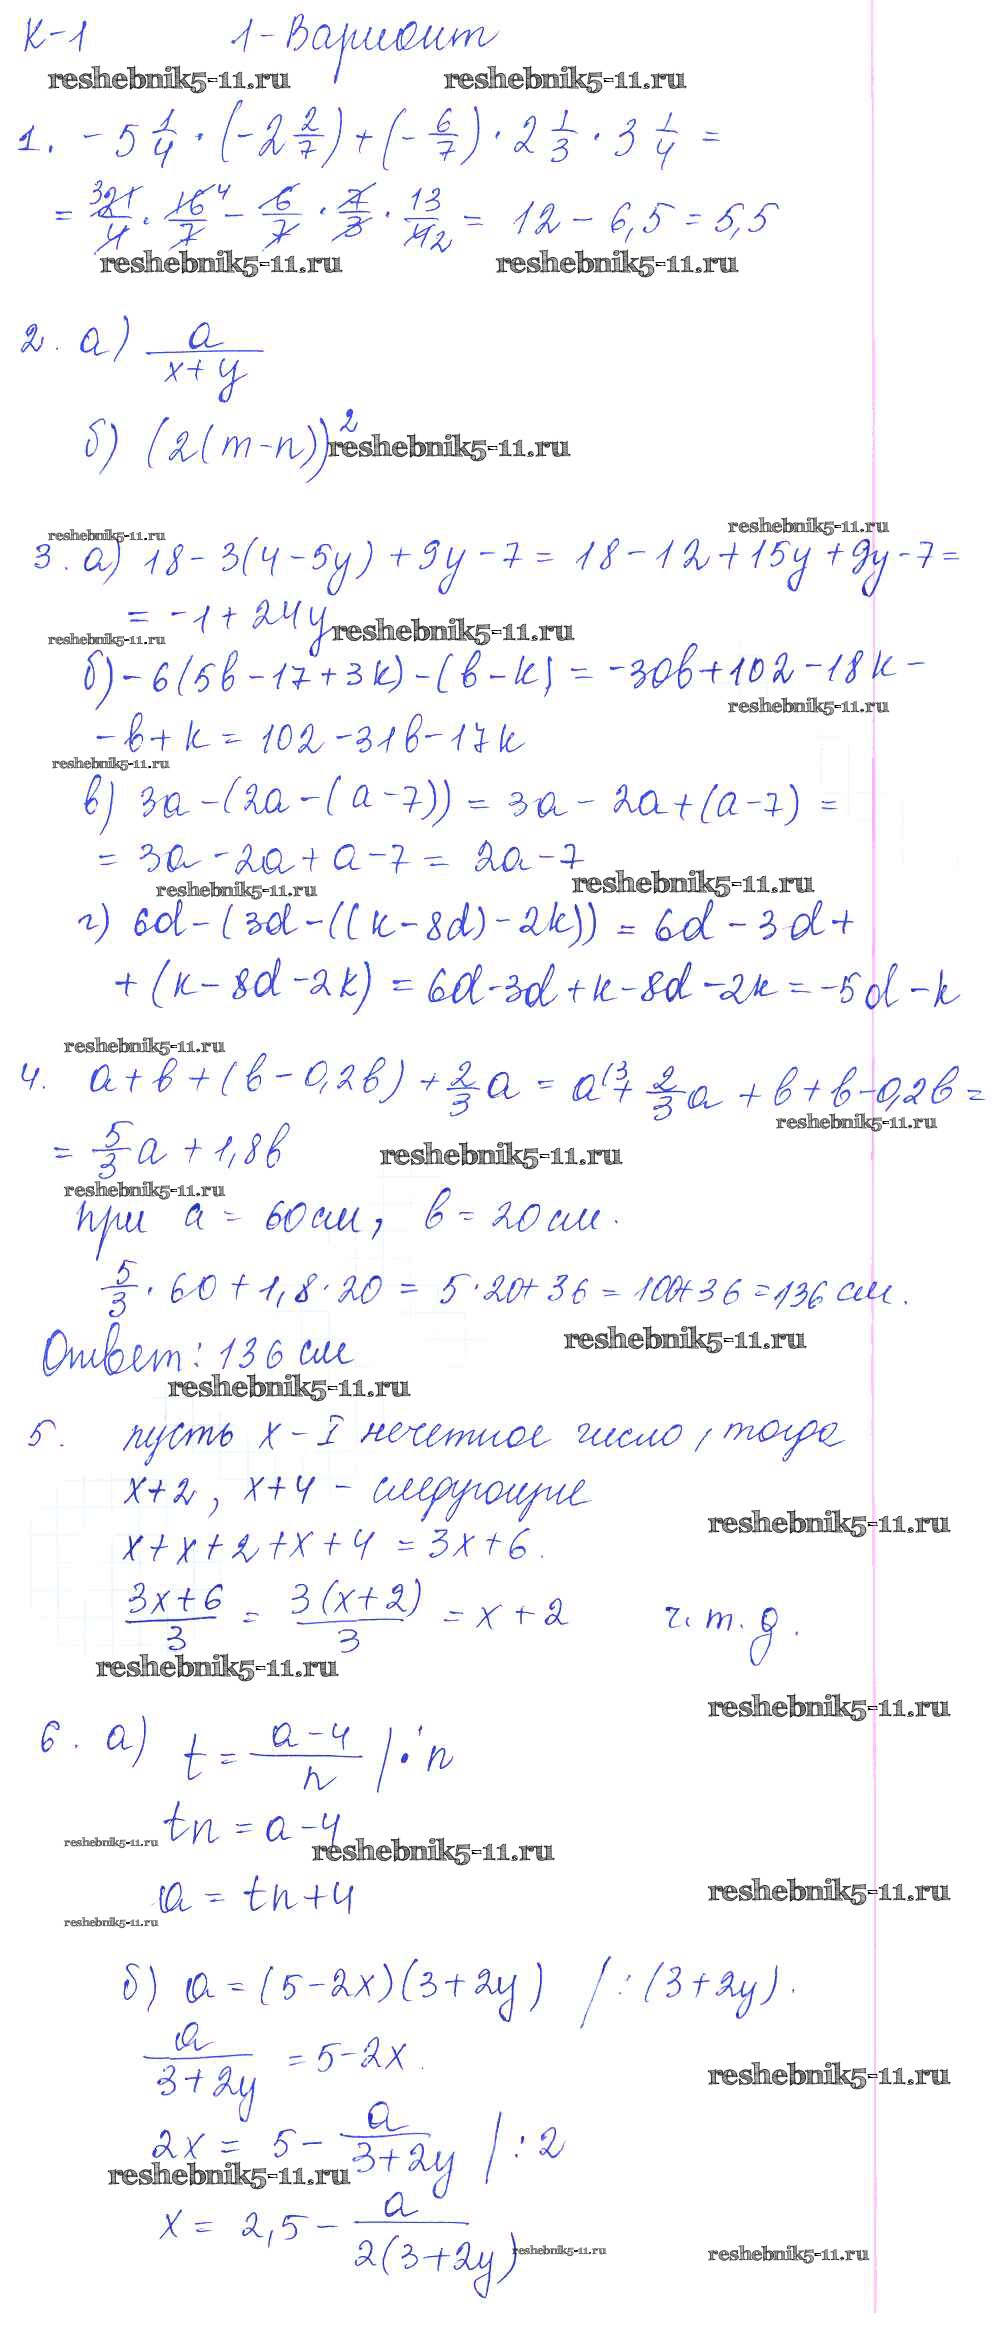 К-1 1-Вариант
reshebnik5-11.ru reshebnik5-11.ru
1. -5 1/4 · (-2 2/7) + (-6/7) · 2 1/3 · 3 1/4 =
= 21/4 3 · 16/7 4 - 6/7 · 7/3 · 13/4 2 = 12 - 6,5 = 5,5
reshebnik5-11.ru reshebnik5-11.ru
2. а) a/(x+y)
б) (2(m-n))²
reshebnik5-11.ru
reshebnik5-11.ru reshebnik5-11.ru
3. а) 18 - 3(4-5y) + 9y - 7 = 18 - 12 + 15y + 9y - 7 =
= -1 + 24y
reshebnik5-11.ru reshebnik5-11.ru
б) -6(5b - 17 + 3k) - (b - k) = -30b + 102 - 18k -
reshebnik5-11.ru
- b + k = 102 - 31b - 17k
reshebnik5-11.ru
в) 3a - (2a - (a-7)) = 3a - 2a + (a-7) =
= 3a - 2a + a - 7 = 2a - 7
reshebnik5-11.ru reshebnik5-11.ru
г) 6d - (3d - ((k - 8d) - 2k)) = 6d - 3d +
+ (k - 8d - 2k) = 6d - 3d + k - 8d - 2k = -5d - k
reshebnik5-11.ru
4. a + b + (b - 0,2b) + 2/3 a = a(3 + 2/3 a + b + b - 0,2b =
reshebnik5-11.ru
= 5/3 a + 1,8b
reshebnik5-11.ru
reshebnik5-11.ru
при a = 60 см, b = 20 см.
5/3 · 60 + 1,8 · 20 = 5 · 20 + 36 = 100 + 36 = 136 см.
reshebnik5-11.ru
Ответ: 136 см
reshebnik5-11.ru
5. пусть x - I нечетное число, тогда
x+2, x+4 - следующие
reshebnik5-11.ru
x + x + 2 + x + 4 = 3x + 6.
(3x+6)/3 = 3(x+2)/3 = x + 2 ч.т.д.
reshebnik5-11.ru
reshebnik5-11.ru
6. а) t = (a-4)/n | · n
tn = a - 4
reshebnik5-11.ru reshebnik5-11.ru
a = tn + 4
reshebnik5-11.ru
reshebnik5-11.ru
б) a = (5 - 2x)(3 + 2y) | : (3 + 2y).
a/(3+2y) = 5 - 2x.
reshebnik5-11.ru
2x = 5 - a/(3+2y) | : 2
reshebnik5-11.ru
x = 2,5 - a/(2(3+2y))
reshebnik5-11.ru reshebnik5-11.ru